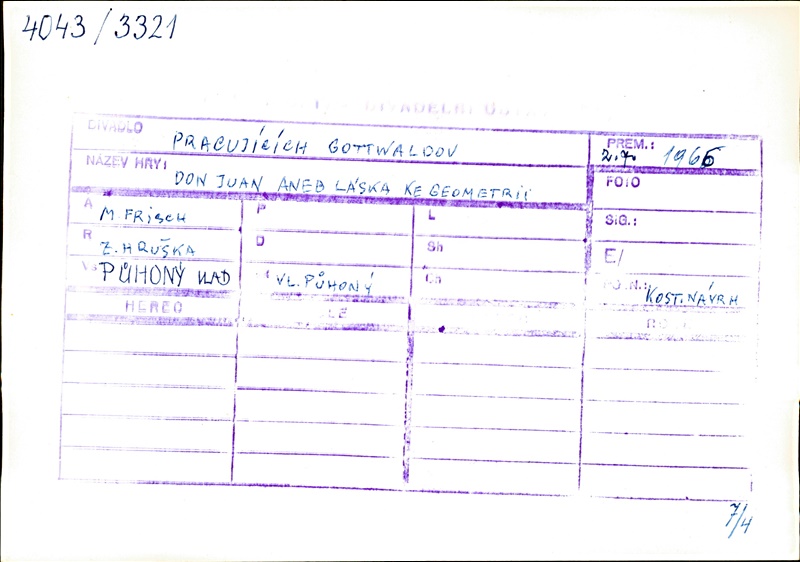 4043/3321
DIVADELNÍ
DIVADLO PRACUJÍCÍCH GOTTWALDOV
PREM.: 2.7. 1966
NÁZEV HRY: DON JUAN ANEB LÁSKA KE GEOMETRII
FOTO
A M. FRISCH P L
SIG.:
R Z. HRUŠKA D Sh
E/
PŮHONÝ VLAD VL. PŮHONÝ Ch
KOST. NÁVRH
HEREC
7/4